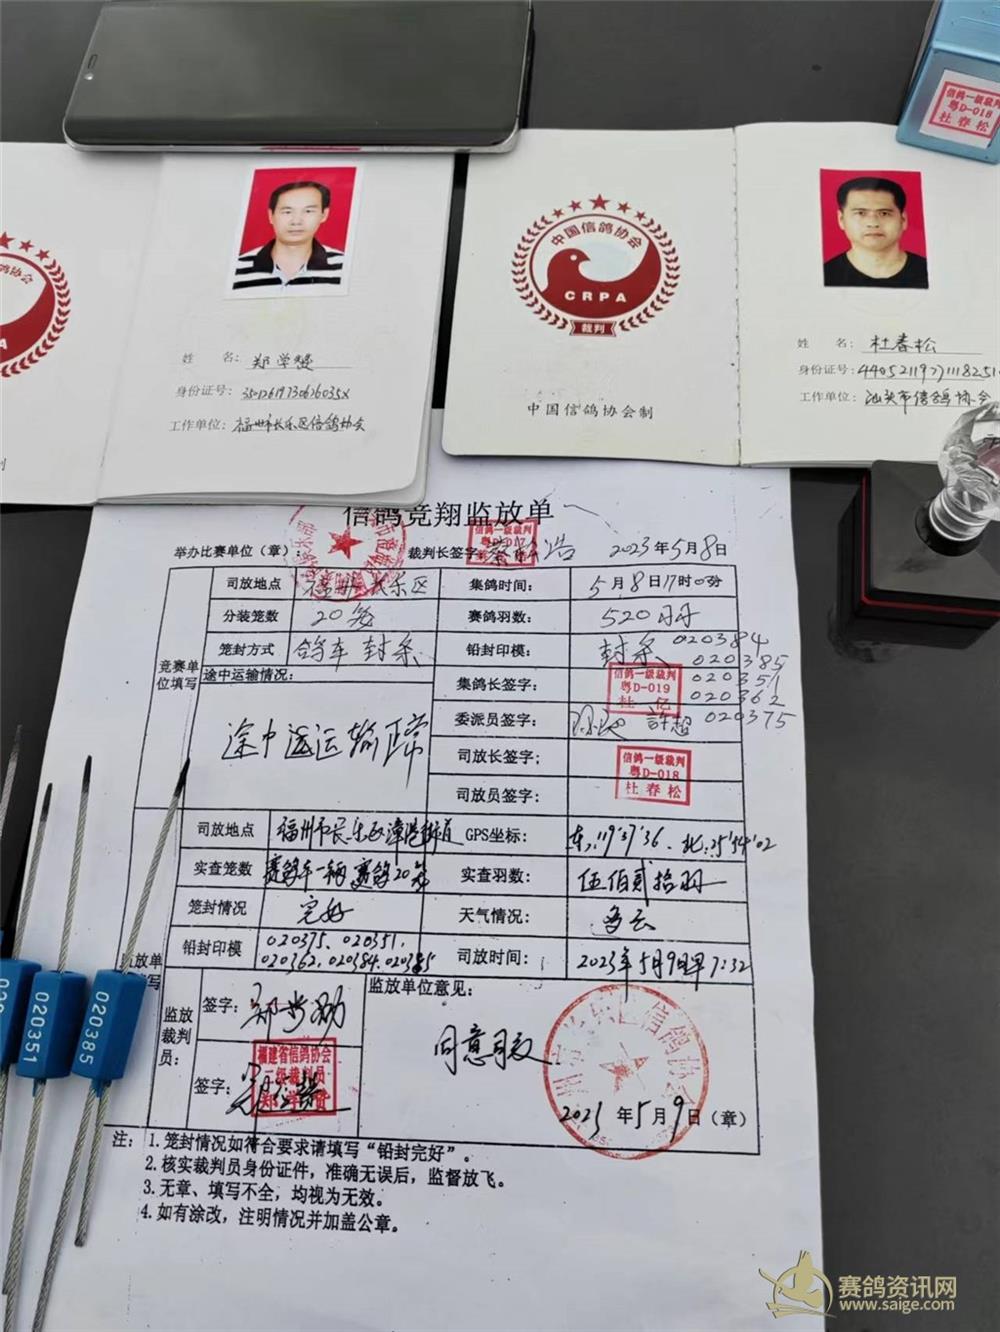 信鸽一级裁判
粤D-018
杜春松
中国信鸽协会
CRPA
裁判
中国信鸽协会制
姓 名: 郑学
身份证号: 35012619730626035X
工作单位: 福州市长乐区信鸽协会
姓 名: 杜春松
身份证号: 440521197711118251
工作单位: 汕头市信鸽协会
信鸽竞翔监放单
举办比赛单位（章）:
裁判长签字:
信鸽一级裁判
2023年5月8日
竞赛单位填写
司放地点 福州长乐区
集鸽时间: 5月8日17时0分
分装笼数 20笼
赛鸽羽数: 520羽
笼封方式 鸽车封条
铅封印模: 封条 020384
020385
020351
020362
020375
途中运输情况:
途中运输正常
集鸽长签字:
信鸽一级裁判
粤D-019
杜 亿
委派员签字: 許超
司放长签字:
信鸽一级裁判
粤D-018
杜春松
司放员签字:
司放地点 福州市长乐区漳港街道
GPS坐标: 东:119°37'36 北:25°54'02
实查笼数 赛鸽车一辆 赛鸽20笼
实查羽数: 伍佰贰拾羽
笼封情况 完好
天气情况: 多云
铅封印模 020375、020351、
020362、020384、020385
司放时间: 2023年5月9日早7:32
监放裁判员:
签字:
签字:
福建省信鸽协会
二级裁判员
监放单位意见:
同意司放
2023年5月9日（章）
注: 1.笼封情况如符合要求请填写“铅封完好”。
2.核实裁判员身份证件，准确无误后，监督放飞。
3.无章、填写不全，均视为无效。
4.如有涂改，注明情况并加盖公章。
020351
020385
赛鸽资讯网
www.saige.com